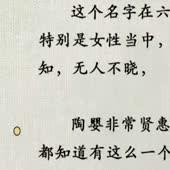 这个名字在六
特别是女性当中，
知，无人不晓，
陶婴非常贤惠
都知道有这么一个